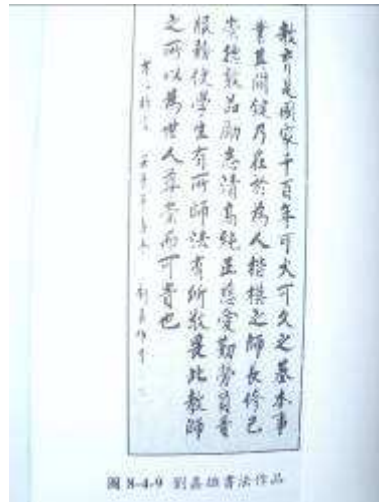 教育是國家千百年可大可久之基本事
業其關鍵乃在於為人楷模之師長修己
崇德敦品勵志清高純正慈愛勤勞負責
服務使學生有所師法有所敬是此教師
之所以為世人尊崇而可貴也
圖 8-4-9 劉嘉雄書法作品